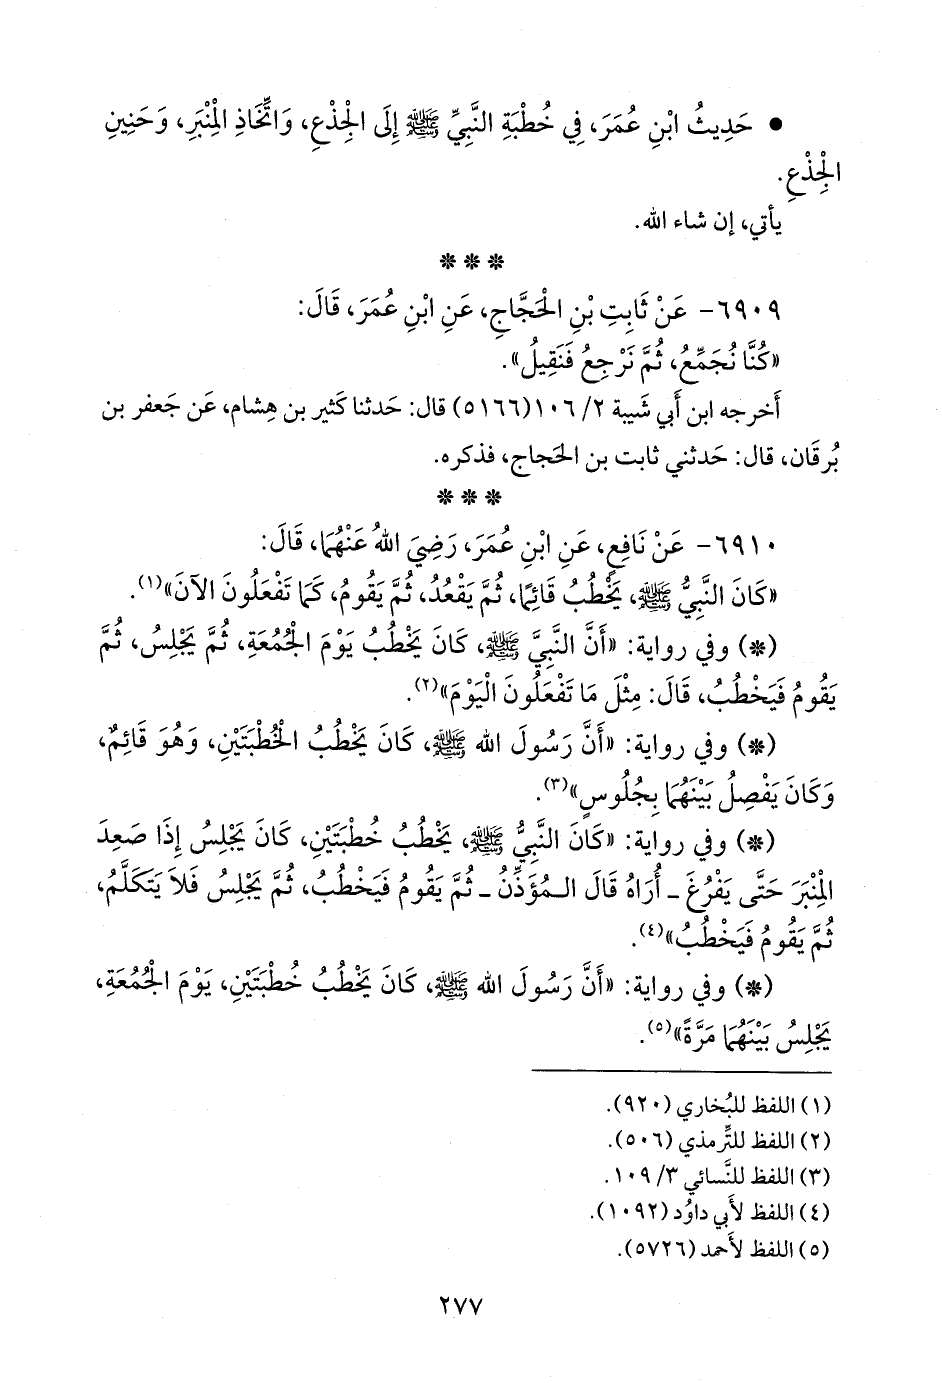 • حَدِيثُ ابْنِ عُمَرَ، فِي خُطْبَةِ النَّبِيِّ ﷺ إِلَى الْجِذْعِ، وَاتِّخَاذِ الْمِنْبَرِ، وَحَنِينِ
الْجِذْعِ.
يأتي، إن شاء الله.
* * *
٦٩٠٩- عَنْ ثَابِتِ بْنِ الْحَجَّاجِ، عَنِ ابْنِ عُمَرَ، قَالَ:
«كُنَّا نُجَمِّعُ، ثُمَّ نَرْجِعُ فَنَقِيلُ».
أَخرجه ابن أَبي شَيبة ٢/ ١٠٦(٥١٦٦) قال: حَدثنا كَثير بن هِشام، عَن جَعفر بن
بُرقَان، قال: حَدثني ثابت بن الحَجاج، فذكره.
* * *
٦٩١٠- عَنْ نَافِعٍ، عَنِ ابْنِ عُمَرَ، رَضِيَ اللهُ عَنْهُمَا، قَالَ:
«كَانَ النَّبِيُّ ﷺ، يَخْطُبُ قَائِمًا، ثُمَّ يَقْعُدُ، ثُمَّ يَقُومُ، كَمَا تَفْعَلُونَ الآنَ»(١).
(*) وفي رواية: «أَنَّ النَّبِيَّ ﷺ، كَانَ يَخْطُبُ يَوْمَ الْجُمُعَةِ، ثُمَّ يَجْلِسُ، ثُمَّ
يَقُومُ فَيَخْطُبُ، قَالَ: مِثْلَ مَا تَفْعَلُونَ الْيَوْمَ»(٢).
(*) وفي رواية: «أَنَّ رَسُولَ الله ﷺ، كَانَ يَخْطُبُ الْخُطْبَتَيْنِ، وَهُوَ قَائِمٌ،
وَكَانَ يَفْصِلُ بَيْنَهُمَا بِجُلُوسٍ»(٣).
(*) وفي رواية: «كَانَ النَّبِيُّ ﷺ، يَخْطُبُ خُطْبَتَيْنِ، كَانَ يَجْلِسُ إِذَا صَعِدَ
الْمِنْبَرَ حَتَّى يَفْرُغَ ـ أُرَاهُ قَالَ الـمُؤَذِّنُ ـ ثُمَّ يَقُومُ فَيَخْطُبُ، ثُمَّ يَجْلِسُ فَلاَ يَتَكَلَّمُ،
ثُمَّ يَقُومُ فَيَخْطُبُ»(٤).
(*) وفي رواية: «أَنَّ رَسُولَ الله ﷺ، كَانَ يَخْطُبُ خُطْبَتَيْنِ، يَوْمَ الْجُمُعَةِ،
يَجْلِسُ بَيْنَهُمَا مَرَّةً»(٥).
(١) اللفظ للبُخاري (٩٢٠).
(٢) اللفظ للتِّرمذي (٥٠٦).
(٣) اللفظ للنَّسائي ٣/ ١٠٩.
(٤) اللفظ لأَبي داوُد (١٠٩٢).
(٥) اللفظ لأَحمد (٥٧٢٦).
٢٧٧